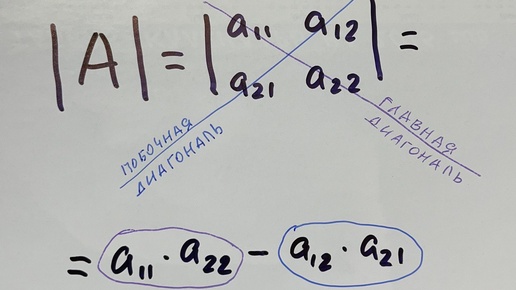 |A| = |a₁₁ a₁₂| =
|a₂₁ a₂₂|
ПОБОЧНАЯ
ДИАГОНАЛЬ
ГЛАВНАЯ
ДИАГОНАЛЬ
= a₁₁ · a₂₂ − a₁₂ · a₂₁